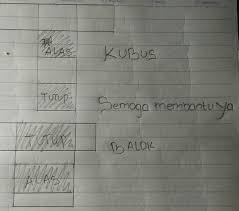 ALAS
KUBUS
TUTUP
Semoga membantu ya
TUTUP
BALOK
ALAS